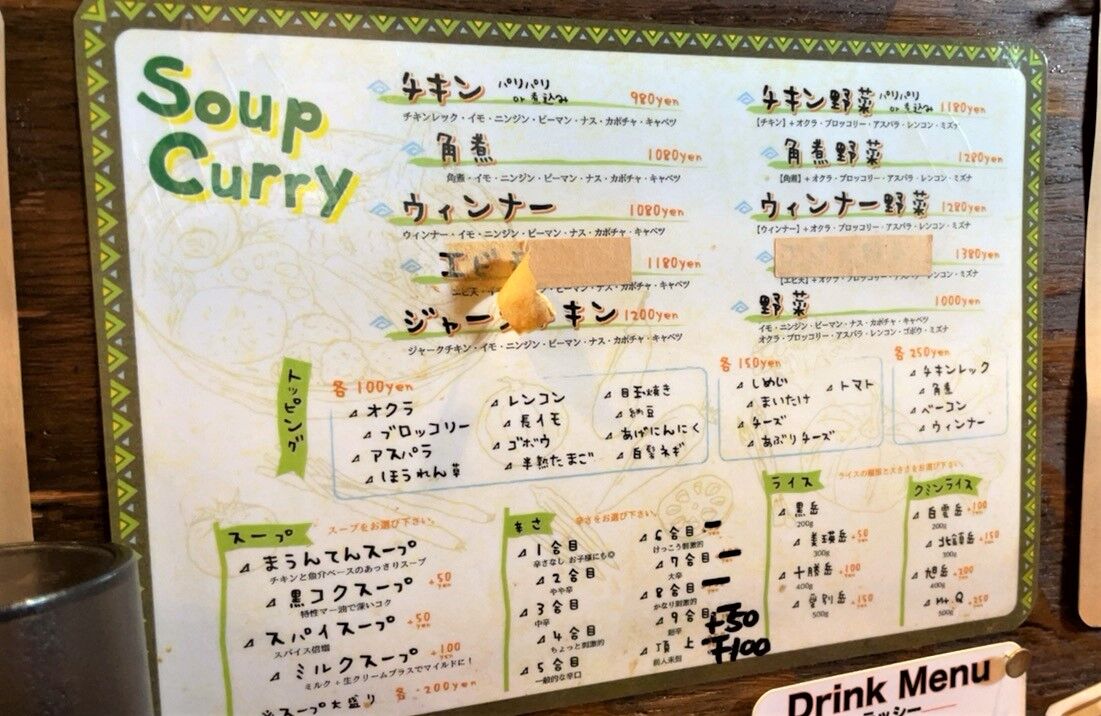 Soup
Curry
チキン パリパリ or 煮込み 980yen
チキンレック・イモ・ニンジン・ピーマン・ナス・カボチャ・キャベツ
角煮 1080yen
角煮・イモ・ニンジン・ピーマン・ナス・カボチャ・キャベツ
ウィンナー 1080yen
ウィンナー・イモ・ニンジン・ピーマン・ナス・カボチャ・キャベツ
エビ 1180yen
ナス・カボチャ・キャベツ
ジャー キン 1200yen
ジャークチキン・イモ・ニンジン・ピーマン・ナス・カボチャ・キャベツ
チキン野菜 パリパリ or 煮込み 1180yen
【チキン】+オクラ・ブロッコリー・アスパラ・レンコン・ミズナ
角煮野菜 1280yen
【角煮】+オクラ・ブロッコリー・アスパラ・レンコン・ミズナ
ウィンナー野菜 1280yen
【ウィンナー】+オクラ・ブロッコリー・アスパラ・レンコン・ミズナ
1380yen
+オクラ・ブロッコリー・アスパラ・レンコン・ミズナ
野菜 1000yen
イモ・ニンジン・ピーマン・ナス・カボチャ・キャベツ
オクラ・ブロッコリー・アスパラ・レンコン・ゴボウ・ミズナ
トッピング
各100yen
オクラ
ブロッコリー
アスパラ
ほうれん草
レンコン
長イモ
ゴボウ
半熟たまご
目玉焼き
納豆
あげにんにく
白髪ネギ
各150yen
しめじ
まいたけ
チーズ
あぶりチーズ
トマト
各250yen
チキンレック
角煮
ベーコン
ウィンナー
スープ スープをお選び下さい。
まうんてんスープ
チキンと魚介ベースのあっさりスープ
黒コクスープ +50yen
特性マー油で深いコク
スパイスープ +50yen
スパイス倍増
ミルクスープ +100yen
ミルク+生クリームプラスでマイルドに!
※スープ大盛り 各・200yen
辛さ 辛さをお選び下さい。
1合目
辛さなし お子様にも◎
2合目
やや辛
3合目
中辛
4合目
ちょっと刺激的
5合目
一般的な辛口
6合目
けっこう刺激的
7合目
大辛
8合目
かなり刺激的
9合目 +50
超辛
頂上 ¥100
前人未到
ライス ライスの種類と大きさをお選び下さい。
黒岳
200g
美瑛岳 +50yen
300g
十勝岳 +100yen
400g
愛別岳 +150yen
500g
クミンライス
白雲岳 +100yen
200g
北鎮岳 +150yen
300g
旭岳 +200yen
400g
Mt.Q +250yen
500g
Drink Menu
ラッシー